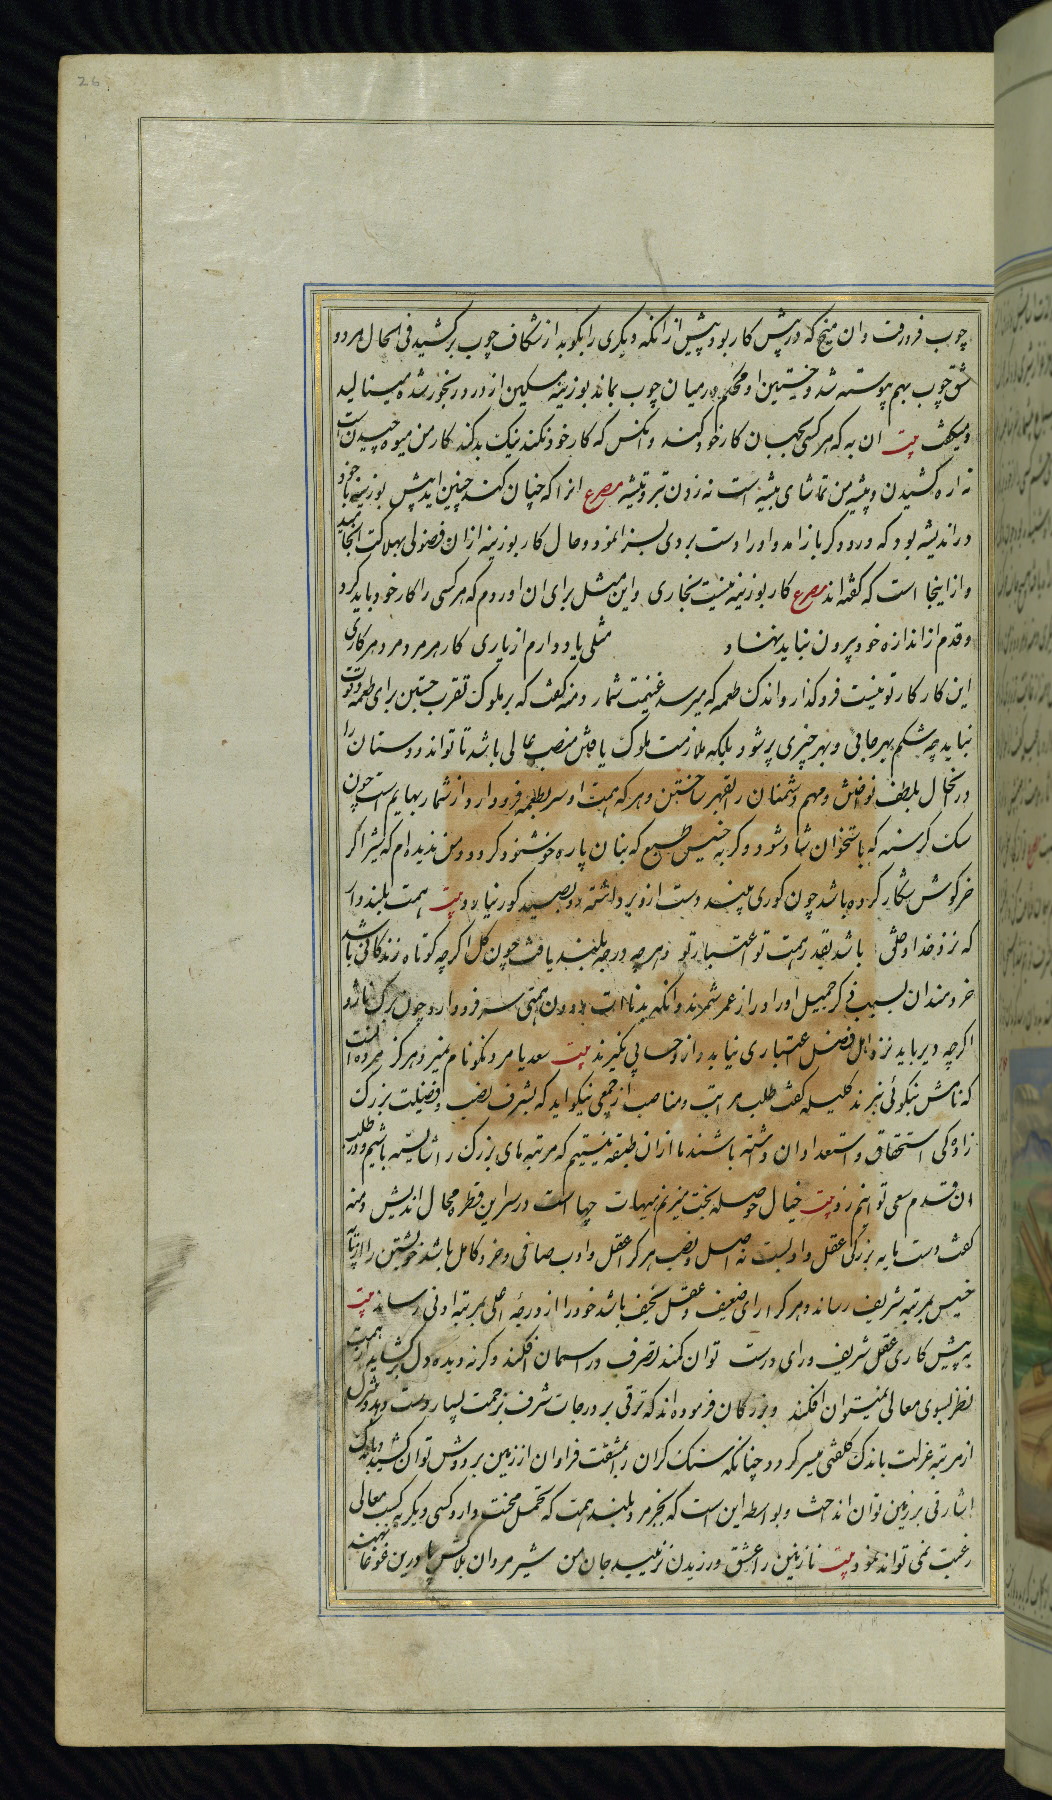 26
چوب فرورفت وان میخ که در پیش کار بود پیش از انکه دیگری را بکوبد از شکاف چوب برکشید فی الحال هر دو
شق چوب بهم پیوسته شد و خصیتین او محکم در میان چوب بماند بوزینه مسکین از درد رنجور شده مینالید
و میکفت بیت ان به که هر کسی بجهان کار خود کند وانکس که کار خود نکند نیک بد کند کار من میوه چیدن است
نه اره کشیدن و پیشه من تماشای بیشه است نه زدن تبر و تیشه مصرع انرا که چنان کند چنین اید پیش بوزینه با خود
در اندیشه بود که درودکر باز امد و او را دست بردی بسزا نمود و حال کار بوزینه ازان فضولی بهلاکت انجامید
و از اینجا است که کفته اند مصرع کار بوزینه نیست نجاری و این مثل برای ان اوردم که هر کسی را کار خود باید کرد
و قدم از اندازه خود بیرون نباید نهاد مثلی یاد دارم از یاری کار هر مرد و مرد هر کاری
این کار کار تو نیست فروکذار و اندک طعمه که میرسد غنیمت شمار دمنه کفت که بر ملوک تقرب جستن برای طعمه و قوت
نباید چه شکم بهر جائی و بهر چیزی پر شود بلکه ملازمت ملوک یافتن منصب عالی باشد تا تواند دوستان را
در انحال بلطف نواختن و مهم دشمنان را بقهر ساختن و هر که همت او سر بطعمه فرود ارد از شمار بهایم است چون
سک کرسنه که باستخوان شاد شود و کربه خسیس طبع که بنان پاره خوشنود کردد و من ندیده ام که شیر اکر
خرکوش شکار کرده باشد چون کوری بیند دست ازو برداشته رو بصید کور نیارد بیت همت بلند دار
که نزد خدا و خلق باشد بقدر همت تو اعتبار تو و هر چه درجه بلند یافت چون کل اکرچه کوتاه زندکانی باشد
خردمندان بسبب ذکر جمیل او را دراز عمر شمرند و انکه بدنائت و دون همتی سر فرود ارد چون برک ناژو
اکرچه دیر باید نزد اهل فضل اعتباری نیابد و ازو حسابی نکیرند بیت سعدیا مرد نکونام نمیرد هرکز مرده انست
که نامش بنیکوئی نبرند کلیله کفت طلب مراتب و مناصب از جمعی نیکو اید که بشرف نسب و فضیلت بزرک
زادکی استحقاق و استعداد ان داشته باشند ما ازان طبقه نیستیم که مرتبه های بزرک را شایسته باشیم و در طلب
ان قدم سعی توانیم زد بیت خیال حوصله بحر می پزم هیهات چهاست در سر این قطره محال اندیش دمنه
کفت دست مایه بزرکی عقل و ادبست نه اصل و نسب هر که را عقل و ادب صافی و خرد کامل باشد خویشتن را از پایه
خسیس بمرتبه شریف رساند و هر که را رای ضعیف و عقل سخیف باشد خود را از درجه اعلی بمرتبه ادنی رساند بیت
به پیش کاری عقل شریف و رای درست توان کمند تصرف در اسمان افکند و کرنه دیده دل برکشاید از همت
نظر بسوی معالی نمیتوان افکند و بزرکان فرموده اند که ترقی بر درجات شرف بزحمت بسیار دست دهد و تنزل
از مرتبه عزلت باندک کلفتی میسر کردد چنانکه سنک کران را بمشقت فراوان از زمین بر دوش توان کشید و باندک
اشارتی بر زمین توان انداخت و بواسطه این است که بجز مرد بلند همت که تحمل محنت دارد کسی دیکر بکسب معالی
رغبت نمی تواند نمود بیت نازنین را عشق ورزیدن نزیبد جان من شیر مردان بلاکش پا درین غوغا نهند